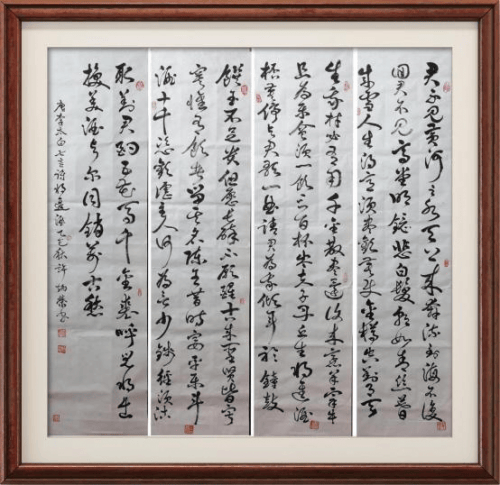 君不見黃河之水天上來奔流到海不復
回君不見高堂明鏡悲白髮朝如青絲暮
成雪人生得意須盡歡莫使金樽空對月天
生我材必有用千金散盡還復來烹羊宰牛
且為樂會須一飲三百杯岑夫子丹丘生將進酒
杯莫停與君歌一曲請君為我傾耳鐘鼓
饌玉不足貴但願長醉不願醒古來聖賢皆寂
寞惟有飲者留其名陳王昔時宴平樂斗
酒十千恣歡謔主人何為言少錢徑須沽
取對君酌五花馬千金裘呼兒將出
換美酒與爾同銷萬古愁
唐李太白七言詩將進酒乙巳秋許炳榮書